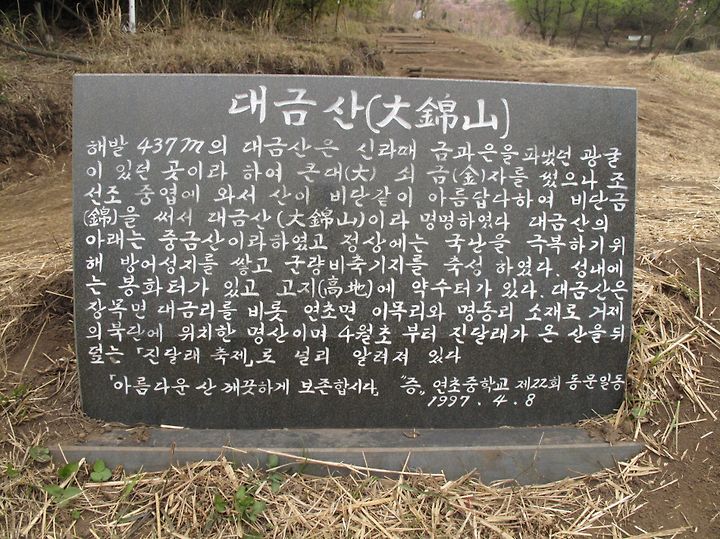 대금산(大錦山)
해발 437m의 대금산은 신라때 금과은을 파냈던 광굴
이 있던 곳이라 하여 큰대(大) 쇠 금(金)자를 썼으나 조
선조 중엽에 와서 산이 비단같이 아름답다하여 비단금
(錦)을 써서 대금산 (大錦山)이라 명명하였다 대금산의
아래는 중금산이라하였고 정상에는 국난을 극복하기위
해 방어성지를 쌓고 군량비축기지를 축성 하였다. 성내에
는 봉화터가 있고 고지(高地)에 약수터가 있다. 대금산은
장목면 대금리를 비롯 연초면 이목리와 명동리 소재로 거제
의북단에 위치한 명산이며 4월초 부터 진달래가 온 산을뒤
덮는 「진달래 축제」로 널리 알려져 있다
「아름다운 산 깨끗하게 보존합시다」 "증" 연초중학교 제22회 동문일동
1997. 4. 8